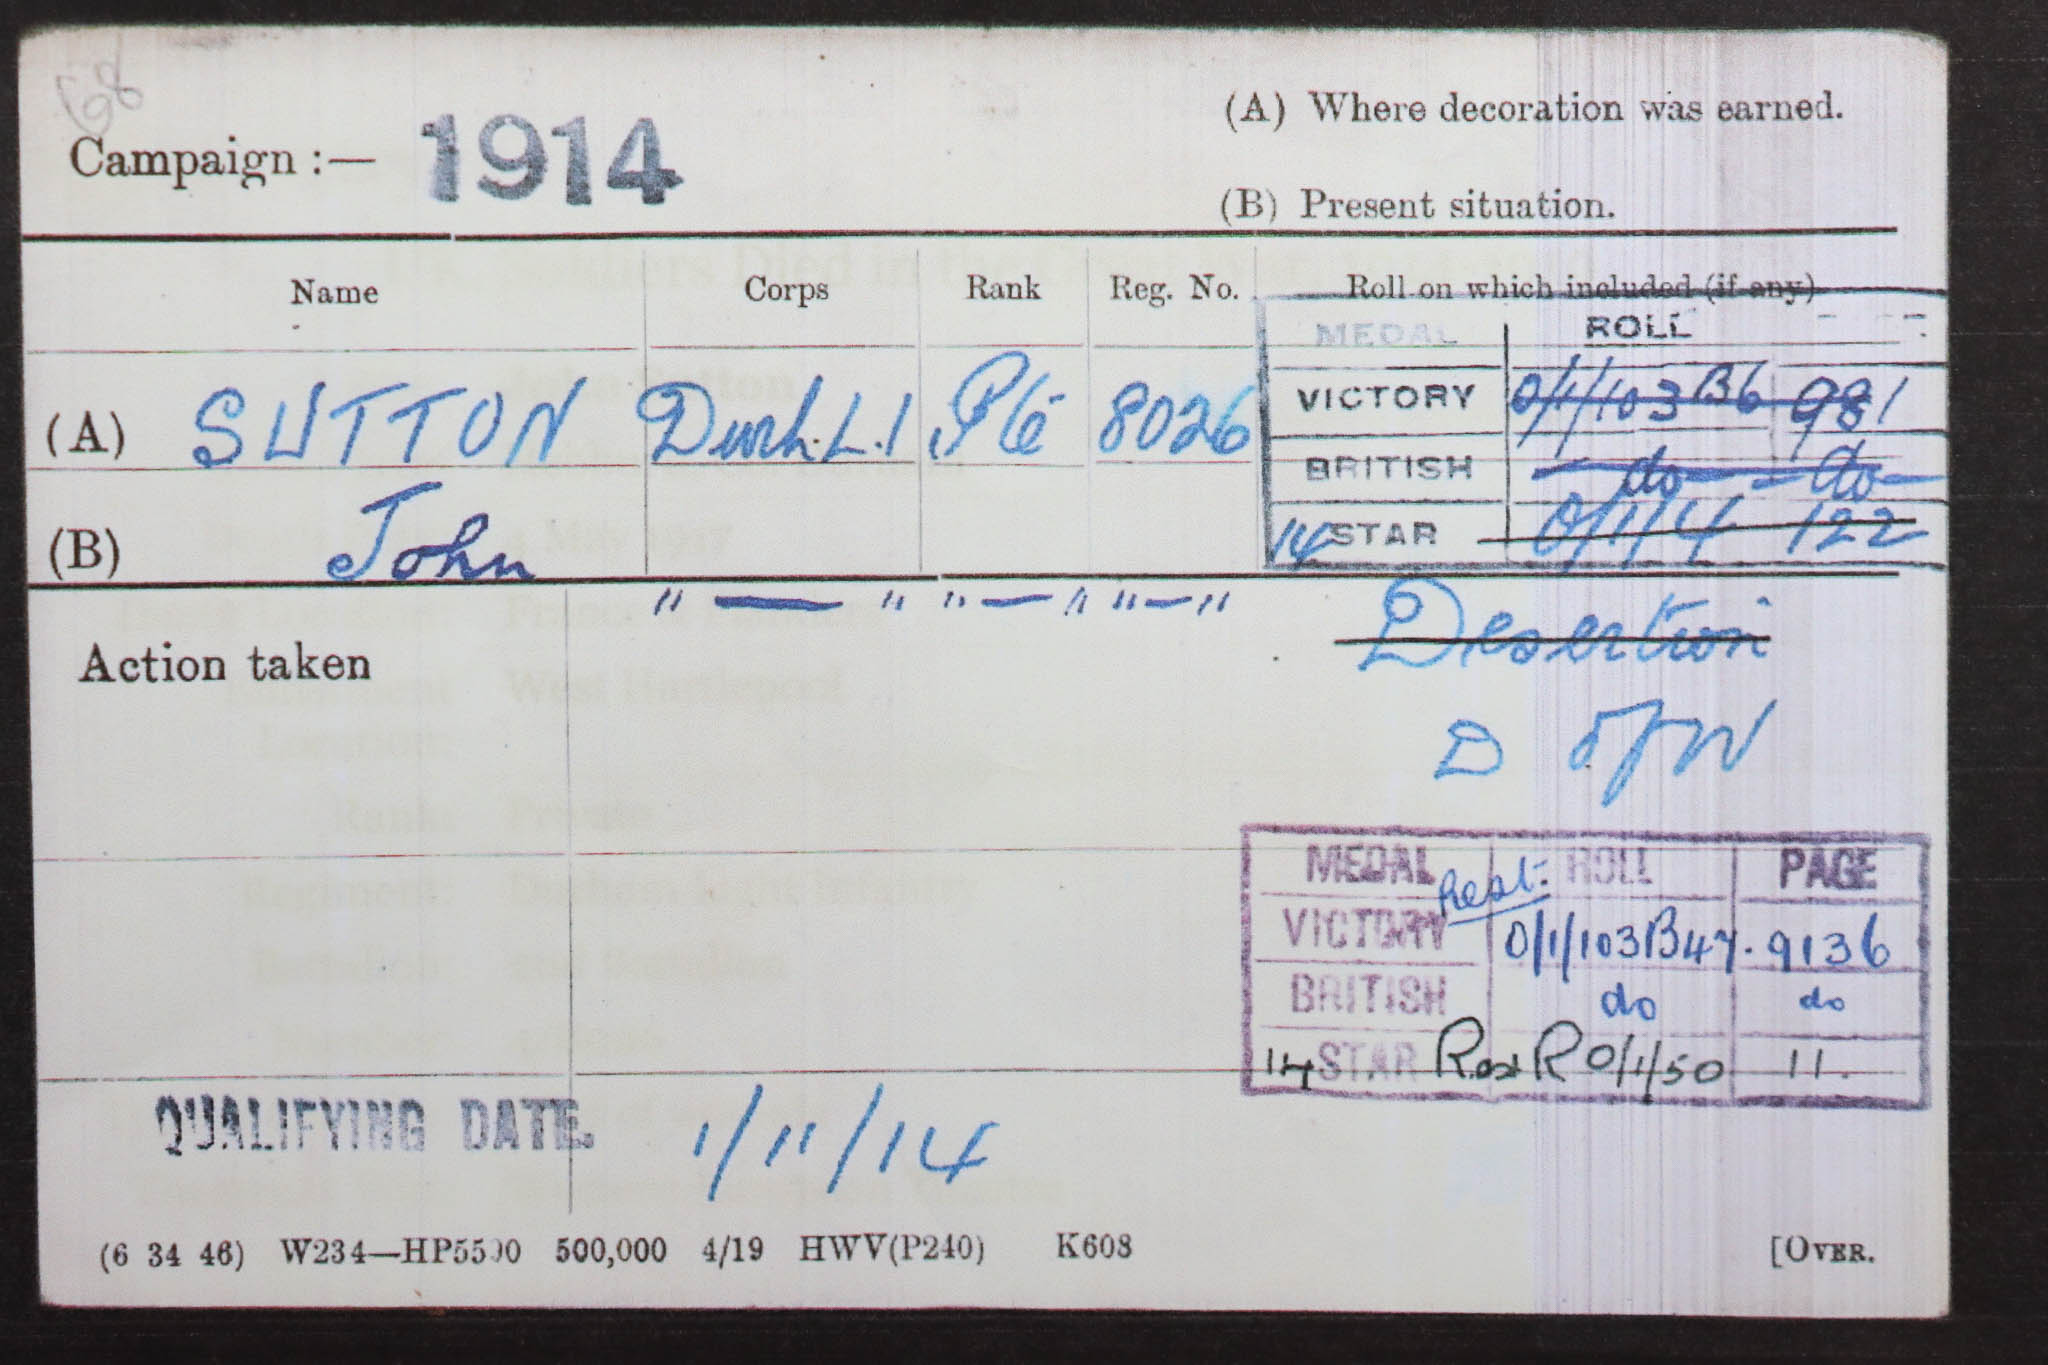 68
Campaign :— 1914
(A) Where decoration was earned.
(B) Present situation.
Name Corps Rank Reg. No. Roll on which included (if any)
MEDAL ROLL
(A) SUTTON Durh. L.I Pte 8026 VICTORY 0/1/103 B6 981
BRITISH do do
(B) John 14 STAR 0/1/4 122
" — " " — " " — "
Desertion
Action taken
D of W
MEDAL ROLL PAGE
Rest:
VICTORY 0/1/103B47. 9136
BRITISH do do
14 STAR Rest R 0/1/50 11.
QUALIFYING DATE. 1/11/14
(6 34 46) W234—HP5590 500,000 4/19 HWV(P240) K608 [OVER.